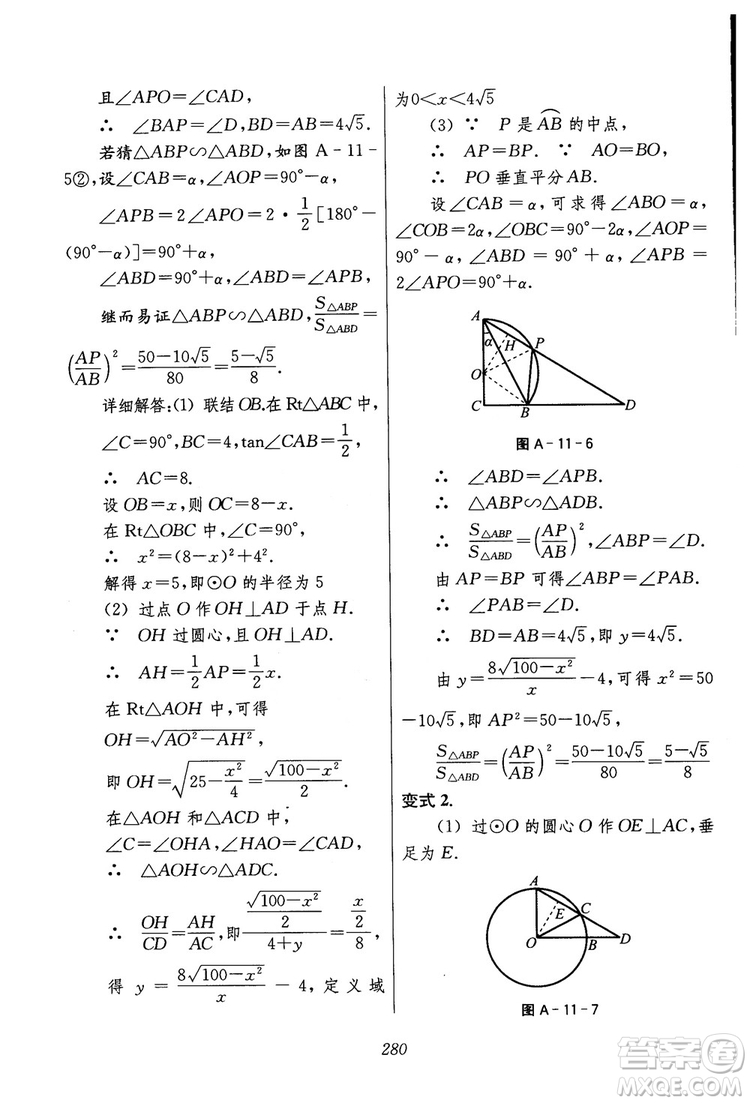 且∠APO=∠CAD,
∴ ∠BAP=∠D,BD=AB=4√5.
若猜△ABP∽△ABD,如图 A-11-
5②,设∠CAB=α,∠AOP=90°-α,
∠APB=2∠APO=2·1/2[180°-
(90°-α)]=90°+α,
∠ABD=90°+α,∠ABD=∠APB,
继而易证△ABP∽△ABD,S△ABP/S△ABD=
(AP/AB)²=(50-10√5)/80=(5-√5)/8.
详细解答:(1) 联结 OB.在 Rt△ABC 中,
∠C=90°,BC=4,tan∠CAB=1/2,
∴ AC=8.
设 OB=x,则 OC=8-x.
在 Rt△OBC 中,∠C=90°,
∴ x²=(8-x)²+4².
解得 x=5,即⊙O 的半径为 5
(2) 过点 O 作 OH⊥AD 于点 H.
∵ OH 过圆心,且 OH⊥AD.
∴ AH=1/2AP=x/2.
在 Rt△AOH 中,可得
OH=√(AO²-AH²),
即 OH=√(25-x²/4)=√(100-x²)/2.
在△AOH 和△ACD 中,
∠C=∠OHA,∠HAO=∠CAD,
∴ △AOH∽△ADC.
∴ OH/CD=AH/AC,即(√(100-x²)/2)/(4+y)=(x/2)/8,
得 y=8√(100-x²)/x-4,定义域
为0<x<4√5
(3) ∵ P 是 AB⌒ 的中点,
∴ AP=BP. ∵ AO=BO,
∴ PO 垂直平分 AB.
设∠CAB=α,可求得∠ABO=α,
∠COB=2α,∠OBC=90°-2α,∠AOP=
90°-α,∠ABD=90°+α,∠APB=
2∠APO=90°+α.
A
α
H
P
O
C
B
D
图 A-11-6
∴ ∠ABD=∠APB.
∴ △ABP∽△ADB.
∴ S△ABP/S△ABD=(AP/AB)²,∠ABP=∠D.
由 AP=BP 可得∠ABP=∠PAB.
∴ ∠PAB=∠D.
∴ BD=AB=4√5,即 y=4√5.
由 y=8√(100-x²)/x-4,可得 x²=50
-10√5,即 AP²=50-10√5,
S△ABP/S△ABD=(AP/AB)²=(50-10√5)/80=(5-√5)/8
变式 2.
(1) 过⊙O 的圆心 O 作 OE⊥AC,垂
足为 E.
A
E
C
O
B
D
图 A-11-7
280
答案圈
MXQE.COM